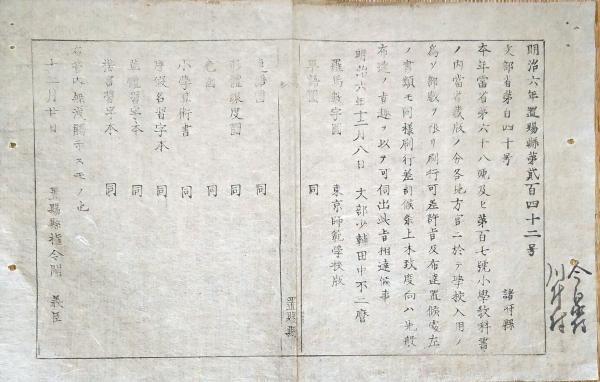 明治六年置賜縣第貳百四十二号
文部省第百四十号
諸府縣
本年當省第六十八號及ヒ第百七號小學教科書
ノ内當省藏版ノ分各地方官ニ於テ學校入用ノ
為メ部数ヲ限リ刷行可差許旨及布達置候處左
ノ書類モ同様刷行差許候条上木致度向ハ先般
布達ノ旨趣ヲ以テ可伺出此旨相達候事
明治六年十二月八日 文部少輔田中不二麿
羅馬数字圖 東京師範學校版
單語圖 同
置賜縣
連語圖 同
形體線度圖 同
色圖 同
小學算術書 同
片假名習字本 同
草體習字本 同
楷書習字本 同
右管内無洩開示スモノ也
十二月廿日 置賜縣權令關 義臣
川井村